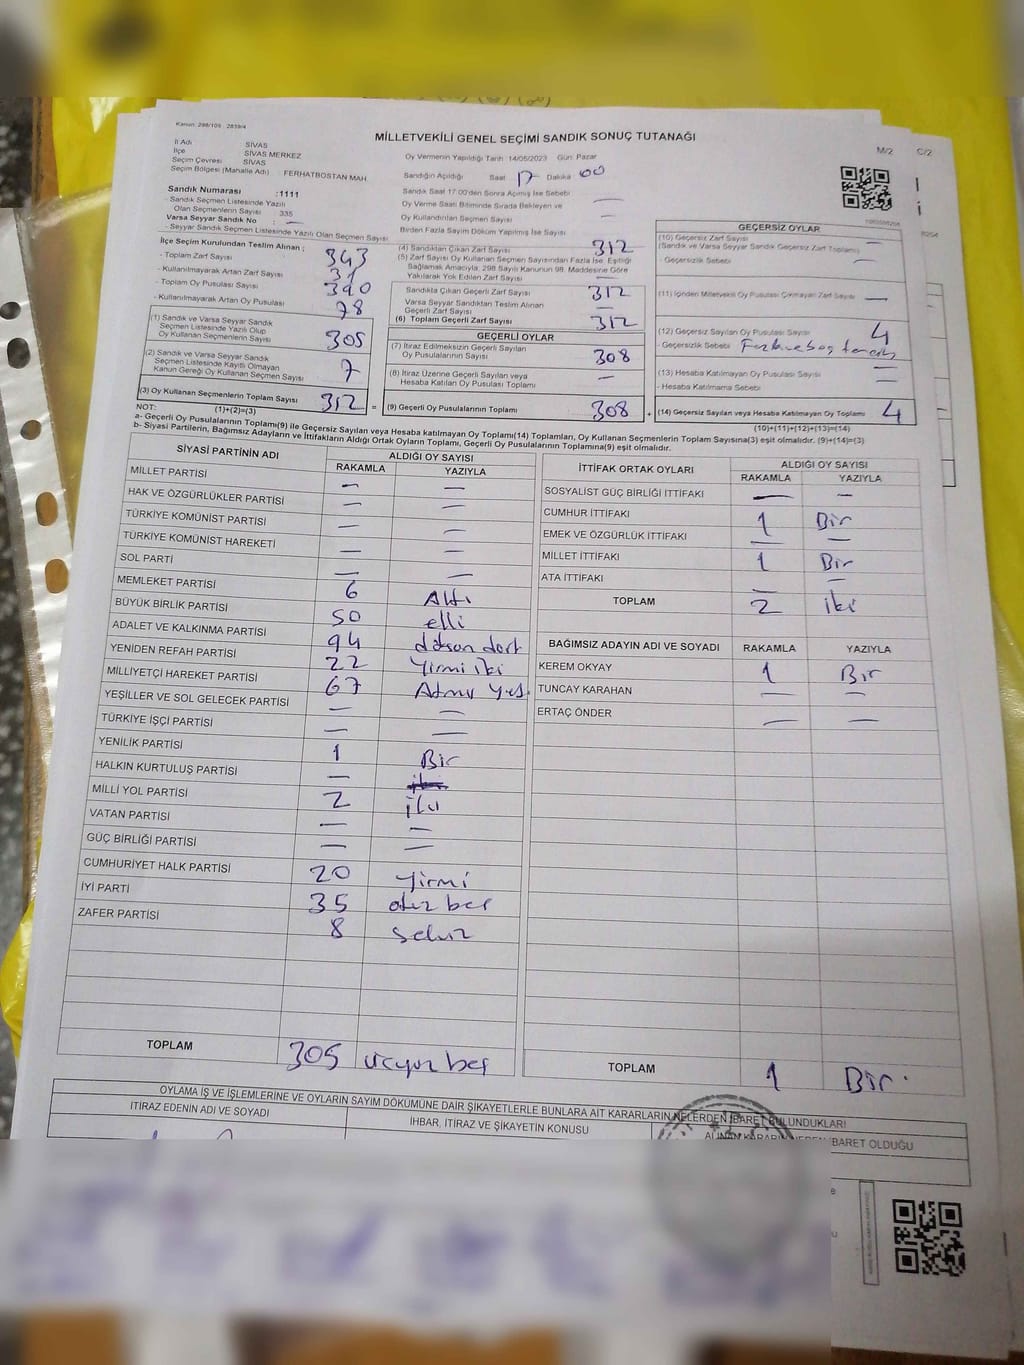 Kanun: 298/105 . 2839/4
MİLLETVEKİLİ GENEL SEÇİMİ SANDIK SONUÇ TUTANAĞI
M/2 C/2
İl Adı SİVAS
İlçe SİVAS MERKEZ
Seçim Çevresi SİVAS
Seçim Bölgesi (Mahalle Adı) FERHATBOSTAN MAH.
Oy Vermenin Yapıldığı Tarih 14/05/2023 Gün: Pazar
Sandığın Açıldığı Saat 17 Dakika 00
Sandık Saat 17:00'den Sonra Açılmış İse Sebebi
Oy Verme Saati Bitiminde Sırada Bekleyen ve
Oy Kullandırılan Seçmen Sayısı —
Birden Fazla Sayım Dökum Yapılmış İse Sayısı
Sandık Numarası :1111
- Sandık Seçmen Listesinde Yazılı
Olan Seçmenlerin Sayısı : 335
Varsa Seyyar Sandık No : —
- Seyyar Sandık Seçmen Listesinde Yazılı Olan Seçmen Sayısı
İlçe Seçim Kurulundan Teslim Alınan ;
- Toplam Zarf Sayısı 343
- Kullanılmayarak Artan Zarf Sayısı 31
- Toplam Oy Pusulası Sayısı 390
- Kullanılmayarak Artan Oy Pusulası 78
(1) Sandık ve Varsa Seyyar Sandık
Seçmen Listesinde Yazılı Olup
Oy Kullanan Seçmenlerin Sayısı 305
(2) Sandık ve Varsa Seyyar Sandık
Seçmen Listesinde Kayıtlı Olmayan
Kanun Gereği Oy Kullanan Seçmen Sayısı 7
(3) Oy Kullanan Seçmenlerin Toplam Sayısı 312 =
(1)+(2)=(3)
(4) Sandıktan Çıkan Zarf Sayısı 312
(5) Zarf Sayısı Oy Kullanan Seçmen Sayısından Fazla İse, Eşitliği
Sağlamak Amacıyla, 298 Sayılı Kanunun 98. Maddesine Göre
Yakılarak Yok Edilen Zarf Sayısı —
Sandıkta Çıkan Geçerli Zarf Sayısı 312
Varsa Seyyar Sandıktan Teslim Alınan
Geçerli Zarf Sayısı —
(6) Toplam Geçerli Zarf Sayısı 312
GEÇERLİ OYLAR
(7) İtiraz Edilmeksizin Geçerli Sayılan
Oy Pusulalarının Sayısı 308
(8) İtiraz Üzerine Geçerli Sayılan veya
Hesaba Katılan Oy Pusulası Toplamı —
(9) Geçerli Oy Pusulalarının Toplamı 308 +
GEÇERSİZ OYLAR
(10) Geçersiz Zarf Sayısı
(Sandık ve Varsa Seyyar Sandık Geçersiz Zarf Toplamı) —
- Geçersizlik Sebebi —
(11) İçinden Milletvekili Oy Pusulası Çıkmayan Zarf Sayısı —
(12) Geçersiz Sayılan Oy Pusulası Sayısı 4
- Geçersizlik Sebebi
(13) Hesaba Katılmayan Oy Pusulası Sayısı —
- Hesaba Katılmama Sebebi —
(14) Geçersiz Sayılan veya Hesaba Katılmayan Oy Toplamı 4
(10)+(11)+(12)+(13)=(14)
NOT:
a- Geçerli Oy Pusulalarının Toplamı(9) ile Geçersiz Sayılan veya Hesaba katılmayan Oy Toplamı(14) Toplamları, Oy Kullanan Seçmenlerin Toplam Sayısına(3) eşit olmalıdır. (9)+(14)=(3)
b- Siyasi Partilerin, Bağımsız Adayların ve İttifakların Aldığı Ortak Oyların Toplamı, Geçerli Oy Pusulalarının Toplamına(9) eşit olmalıdır.
SİYASİ PARTİNİN ADI ALDIĞI OY SAYISI
RAKAMLA YAZIYLA
MİLLET PARTİSİ — —
HAK VE ÖZGÜRLÜKLER PARTİSİ — —
TÜRKİYE KOMÜNİST PARTİSİ — —
TÜRKİYE KOMÜNİST HAREKETİ — —
SOL PARTİ — —
MEMLEKET PARTİSİ 6 Altı
BÜYÜK BİRLİK PARTİSİ 50 elli
ADALET VE KALKINMA PARTİSİ 94 doksan dört
YENİDEN REFAH PARTİSİ 22 Yirmi iki
MİLLİYETÇİ HAREKET PARTİSİ 67 Atmış yedi
YEŞİLLER VE SOL GELECEK PARTİSİ — —
TÜRKİYE İŞÇİ PARTİSİ — —
YENİLİK PARTİSİ 1 Bir
HALKIN KURTULUŞ PARTİSİ —
MİLLİ YOL PARTİSİ 2 iki
VATAN PARTİSİ — —
GÜÇ BİRLİĞİ PARTİSİ — —
CUMHURİYET HALK PARTİSİ 20 Yirmi
İYİ PARTİ 35 otuz beş
ZAFER PARTİSİ 8 sekiz
TOPLAM 305 üçyüz beş
İTTİFAK ORTAK OYLARI ALDIĞI OY SAYISI
RAKAMLA YAZIYLA
SOSYALİST GÜÇ BİRLİĞİ İTTİFAKI — —
CUMHUR İTTİFAKI 1 Bir
EMEK VE ÖZGÜRLÜK İTTİFAKI — —
MİLLET İTTİFAKI 1 Bir
ATA İTTİFAKI — —
TOPLAM 2 iki
BAĞIMSIZ ADAYIN ADI VE SOYADI RAKAMLA YAZIYLA
KEREM OKYAY 1 Bir
TUNCAY KARAHAN — —
ERTAÇ ÖNDER — —
TOPLAM 1 Bir
OYLAMA İŞ VE İŞLEMLERİNE VE OYLARIN SAYIM DÖKÜMÜNE DAİR ŞİKAYETLERLE BUNLARA AİT KARARLARIN NELERDEN İBARET BULUNDUKLARI
İTİRAZ EDENİN ADI VE SOYADI İHBAR, İTİRAZ VE ŞİKAYETİN KONUSU ALINAN KARARIN NEDEN İBARET OLDUĞU